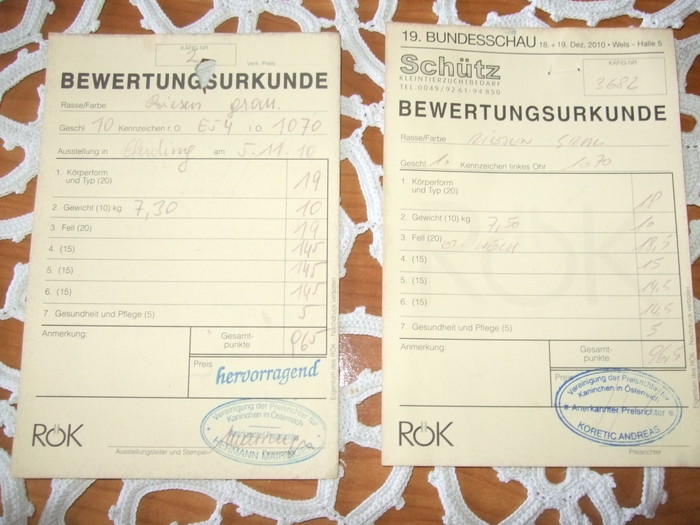 KÄFIG-NR.
2
Verk. Preis
BEWERTUNGSURKUNDE
Rasse/Farbe Riesen grau.
Geschl. 10 Kennzeichen r.O. E54 l.O. 1070
Ausstellung in am 5.11.10
1. Körperform
und Typ (20) 19
2. Gewicht (10) kg 7,30 10
3. Fell (20) 19
4. (15) 14,5
5. (15) 14,5
6. (15) 14,5
7. Gesundheit und Pflege (5) 5
Anmerkung:
Gesamt-
punkte 96,5
Preis
hervorragend
Vereinigung der Preisrichter für
Kaninchen in Österreich
RÖK
Ausstellungsleiter und Stempel
19. BUNDESSCHAU 18. + 19. Dez. 2010 • Wels - Halle 5
Schütz
KLEINTIERZUCHTBEDARF
TEL. 0049/92 61-94 850
KÄFIG-NR.
3682
BEWERTUNGSURKUNDE
Rasse/Farbe RIESEN GRAU
Geschl. 1.0 Kennzeichen linkes Ohr 1070
1. Körperform
und Typ (20)
2. Gewicht (10) kg 7,50 10
3. Fell (20) 18,5
4. (15) 15
5. (15) 14,5
6. (15) 14,5
7. Gesundheit und Pflege (5) 5
RÖK
Anmerkung:
Gesamt-
punkte 96,5
Vereinigung der Preisrichter für
Kaninchen in Österreich
Anerkannter Preisrichter
KORETIC ANDREAS
RÖK
Preisrichter